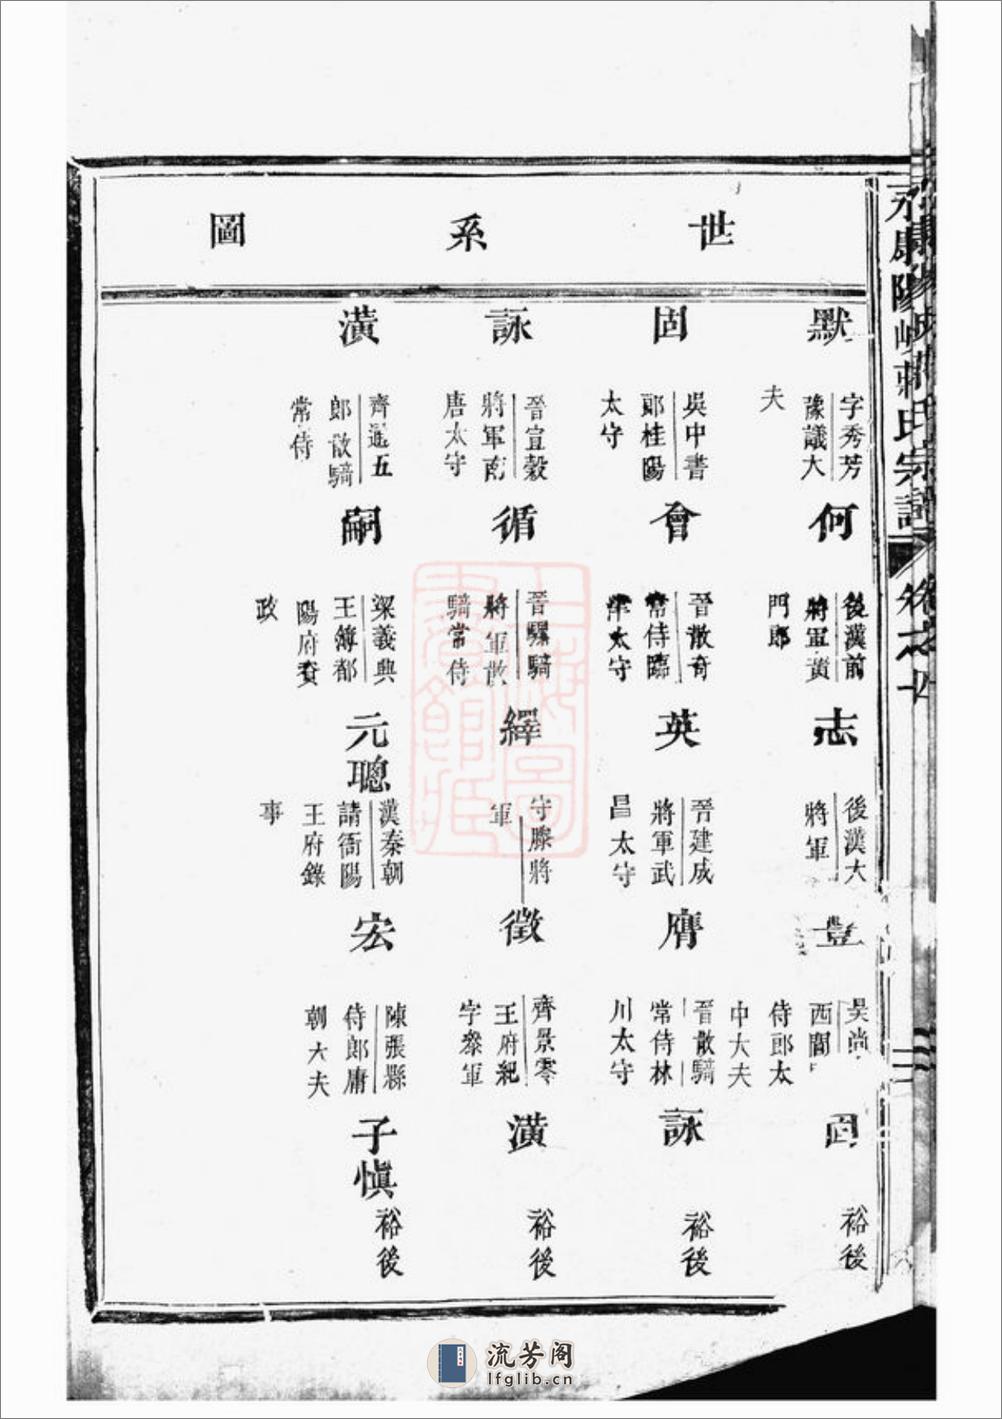 永康陽峴蔣氏宗譜 卷之四
世系圖
默
字秀芳
豫議大
夫
何
後漢前
將軍黃
門郎
志
後漢大
將軍
豐
吳尚
西閣
侍郎太
中大夫
固
裕後
固
吳中書
郎桂陽
太守
會
晉散奇
常侍臨
津太守
英
晉建威
將軍武
昌太守
膺
晉散騎
常侍林
川太守
詠
裕後
詠
晉宣毅
將軍南
唐太守
循
晉驃騎
將軍散
騎常侍
繹
守滕將
軍
徵
齊景零
王府紀
字叅軍
潢
裕後
潢
齊進五
郎散騎
常侍
嗣
梁義興
王簿都
陽府賓
政
元聰
漢秦朝
請衡陽
王府錄
事
宏
陳張縣
侍郎庸
朝大夫
子慎
裕後
流芳阁
lfglib.cn